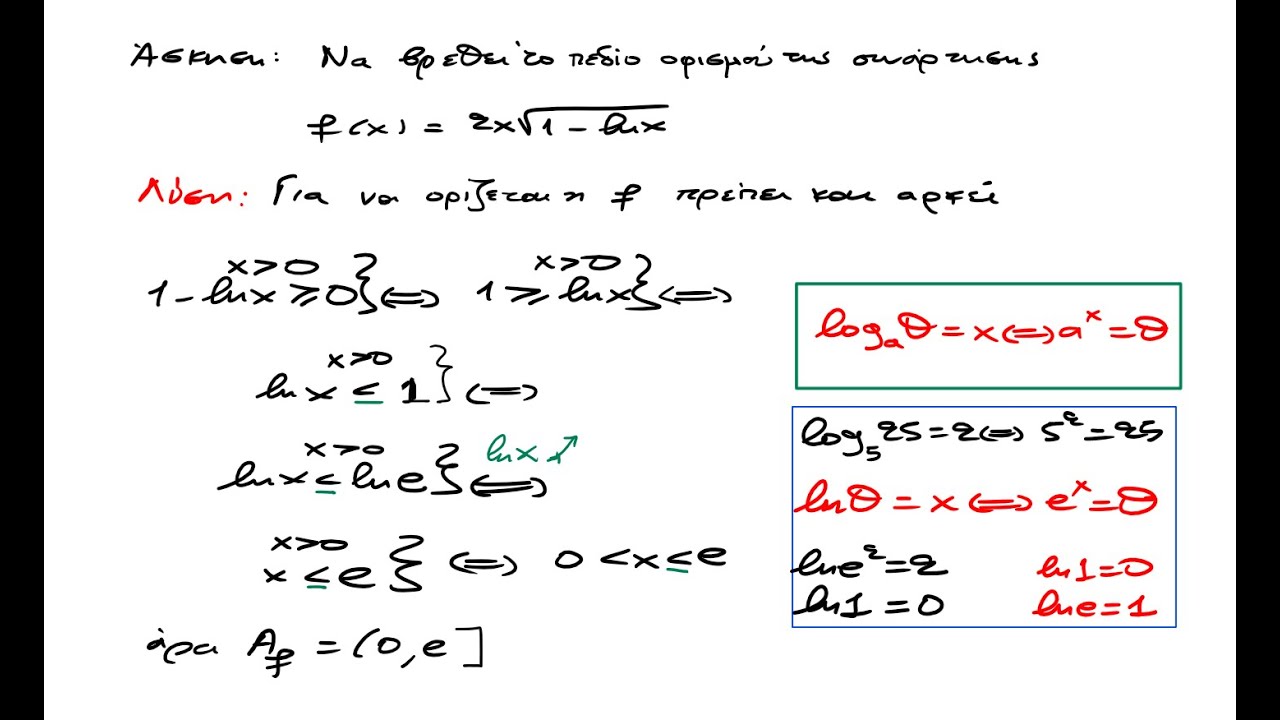 Άσκηση: Να βρεθεί το πεδίο ορισμού της συνάρτησης
f(x) = 2x√(1 - lnx)
Λύση: Για να ορίζεται η f πρέπει και αρκεί
x>0
1 - lnx ≥ 0} ⟺
x>0
1 ≥ lnx} ⟺
x>0
lnx ≤ 1} ⟺
x>0
lnx ≤ lne} ⟺ lnx ↗
x>0
x ≤ e} ⟺ 0 < x ≤ e
άρα A_f = (0, e]
log_a θ = x ⟺ a^x = θ
log_5 25 = 2 ⟺ 5^2 = 25
lnθ = x ⟺ e^x = θ
lne^2 = 2 ln1 = 0
ln1 = 0 lne = 1